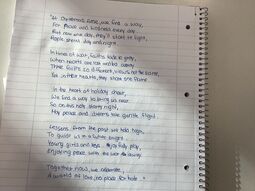 "At Christmas time, we find a way,
For Peace and kindness every day.
But now one day, they'll start to fight,
People shout day and night.
In times of war, faiths fade to grey,
When hearts are lost and led astray
Three faiths so different, values not the same,
Yet in their hearts, they share one flame.
In the heart of holiday cheer,
We find a way to bring us near
So on this holy starry night,
May peace and dreams take gentle flight.
Lessons from the past we hold high,
To guide us in a future bright
Young girls and boys play,
Enjoying peace with the
Together now, we celebrate,
A world of love, no place for hate."